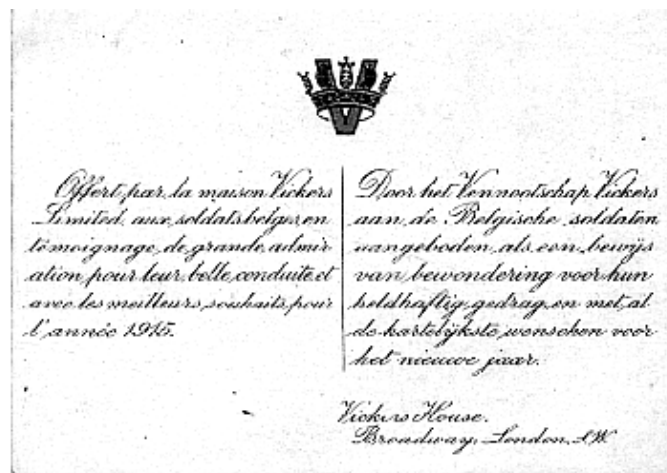 Offert par la maison Vickers
Limited aux soldats belges en
témoignage de grande admir
ation pour leur belle conduite et
avec les meilleurs souhaits pour
l'année 1915.
Door het Vennootschap Vickers
aan de Belgische soldaten
aangeboden als een bewijs
van bewondering voor hun
heldhaftig gedrag en met al
de hartelijkste wenschen voor
het nieuwe jaar.
Vickers House.
Broadway. London. S.W.